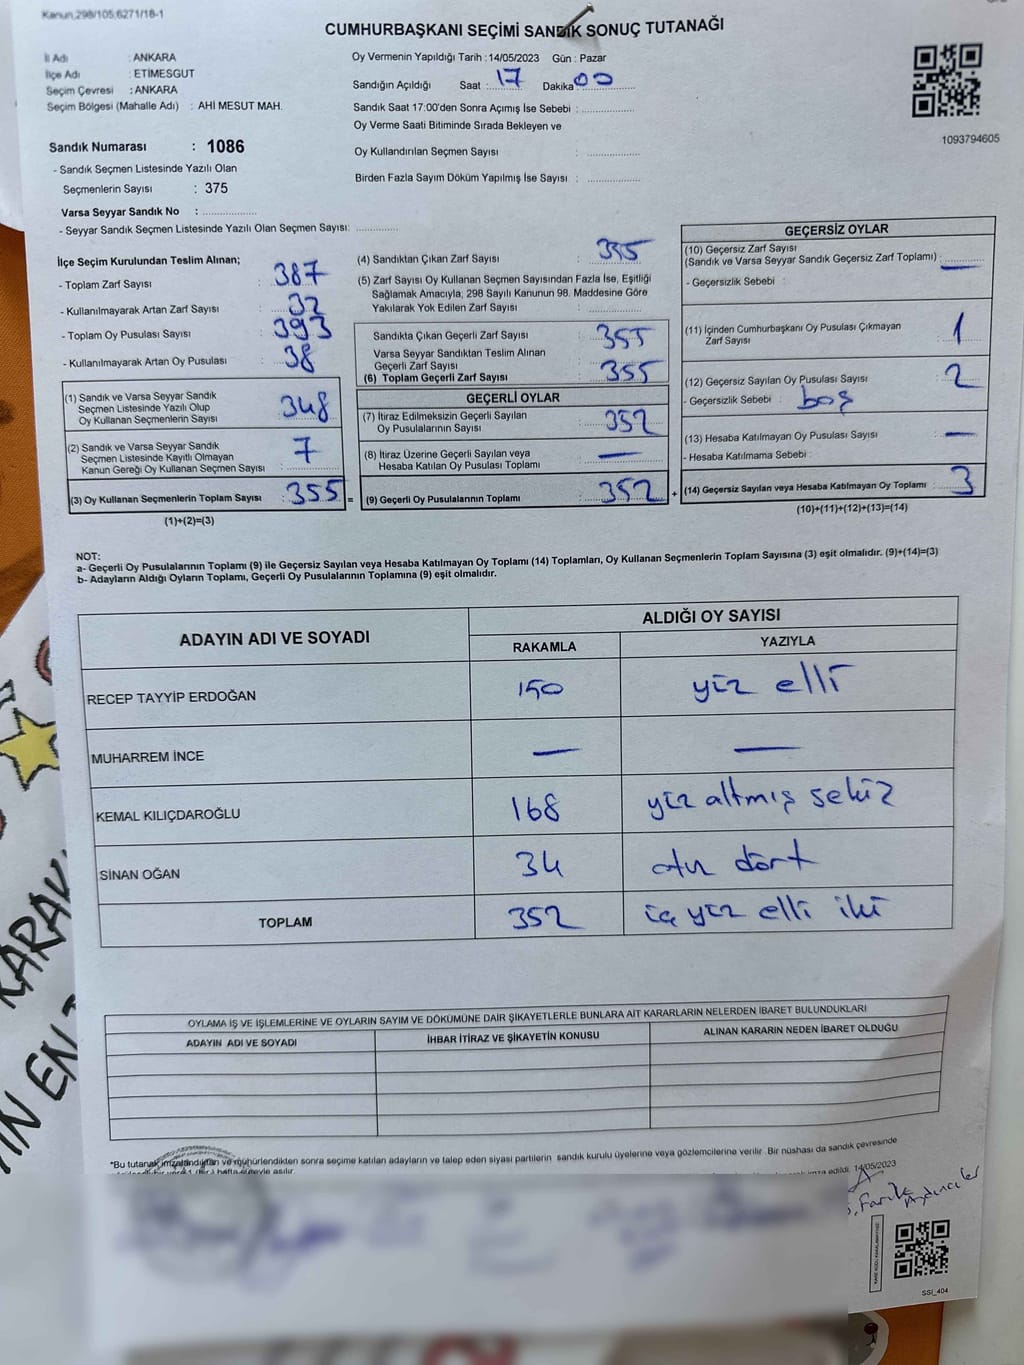 Kanun,298/105,6271/18-1
CUMHURBAŞKANI SEÇİMİ SANDIK SONUÇ TUTANAĞI
İl Adı : ANKARA
İlçe Adı : ETİMESGUT
Seçim Çevresi : ANKARA
Seçim Bölgesi (Mahalle Adı) : AHİ MESUT MAH.
Oy Vermenin Yapıldığı Tarih : 14/05/2023 Gün : Pazar
Sandığın Açıldığı Saat : 17 Dakika 00
Sandık Saat 17:00'den Sonra Açımış İse Sebebi :
Oy Verme Saati Bitiminde Sırada Bekleyen ve
Oy Kullandırılan Seçmen Sayısı :
Birden Fazla Sayım Döküm Yapılmış İse Sayısı :
1093794605
Sandık Numarası : 1086
- Sandık Seçmen Listesinde Yazılı Olan
Seçmenlerin Sayısı : 375
Varsa Seyyar Sandık No :
- Seyyar Sandık Seçmen Listesinde Yazılı Olan Seçmen Sayısı:
İlçe Seçim Kurulundan Teslim Alınan;
- Toplam Zarf Sayısı : 387
- Kullanılmayarak Artan Zarf Sayısı : 32
- Toplam Oy Pusulası Sayısı : 393
- Kullanılmayarak Artan Oy Pusulası : 38
(1) Sandık ve Varsa Seyyar Sandık
Seçmen Listesinde Yazılı Olup
Oy Kullanan Seçmenlerin Sayısı : 348
(2) Sandık ve Varsa Seyyar Sandık
Seçmen Listesinde Kayıtlı Olmayan
Kanun Gereği Oy Kullanan Seçmen Sayısı : 7
(3) Oy Kullanan Seçmenlerin Toplam Sayısı : 355 =
(1)+(2)=(3)
(4) Sandıktan Çıkan Zarf Sayısı : 355
(5) Zarf Sayısı Oy Kullanan Seçmen Sayısından Fazla İse, Eşitliği
Sağlamak Amacıyla, 298 Sayılı Kanunun 98. Maddesine Göre
Yakılarak Yok Edilen Zarf Sayısı :
Sandıkta Çıkan Geçerli Zarf Sayısı : 355
Varsa Seyyar Sandıktan Teslim Alınan
Geçerli Zarf Sayısı
(6) Toplam Geçerli Zarf Sayısı : 355
GEÇERLİ OYLAR
(7) İtiraz Edilmeksizin Geçerli Sayılan
Oy Pusulalarının Sayısı : 352
(8) İtiraz Üzerine Geçerli Sayılan veya
Hesaba Katılan Oy Pusulası Toplamı : —
(9) Geçerli Oy Pusulalarının Toplamı : 352 +
GEÇERSİZ OYLAR
(10) Geçersiz Zarf Sayısı
(Sandık ve Varsa Seyyar Sandık Geçersiz Zarf Toplamı) : —
- Geçersizlik Sebebi :
(11) İçinden Cumhurbaşkanı Oy Pusulası Çıkmayan
Zarf Sayısı : 1
(12) Geçersiz Sayılan Oy Pusulası Sayısı : 2
- Geçersizlik Sebebi : boş
(13) Hesaba Katılmayan Oy Pusulası Sayısı : —
- Hesaba Katılmama Sebebi :
(14) Geçersiz Sayılan veya Hesaba Katılmayan Oy Toplamı : 3
(10)+(11)+(12)+(13)=(14)
NOT:
a- Geçerli Oy Pusulalarının Toplamı (9) ile Geçersiz Sayılan veya Hesaba Katılmayan Oy Toplamı (14) Toplamları, Oy Kullanan Seçmenlerin Toplam Sayısına (3) eşit olmalıdır. (9)+(14)=(3)
b- Adayların Aldığı Oyların Toplamı, Geçerli Oy Pusulalarının Toplamına (9) eşit olmalıdır.
ADAYIN ADI VE SOYADI ALDIĞI OY SAYISI
RAKAMLA YAZIYLA
RECEP TAYYİP ERDOĞAN 150 yüz elli
MUHARREM İNCE — —
KEMAL KILIÇDAROĞLU 168 yüz altmış sekiz
SİNAN OĞAN 34 otuz dört
TOPLAM 352 üç yüz elli iki
OYLAMA İŞ VE İŞLEMLERİNE VE OYLARIN SAYIM VE DÖKÜMÜNE DAİR ŞİKAYETLERLE BUNLARA AİT KARARLARIN NELERDEN İBARET BULUNDUKLARI
ADAYIN ADI VE SOYADI İHBAR İTİRAZ VE ŞİKAYETİN KONUSU ALINAN KARARIN NEDEN İBARET OLDUĞU
*Bu tutanak imzalandıktan ve mühürlendikten sonra seçime katılan adayların ve talep eden siyasi partilerin sandık kurulu üyelerine veya gözlemcilerine verilir. Bir nüshası da sandık çevresinde
imza edildi. 14/05/2023
Faruk
SSI_404
KARAV
IN EN